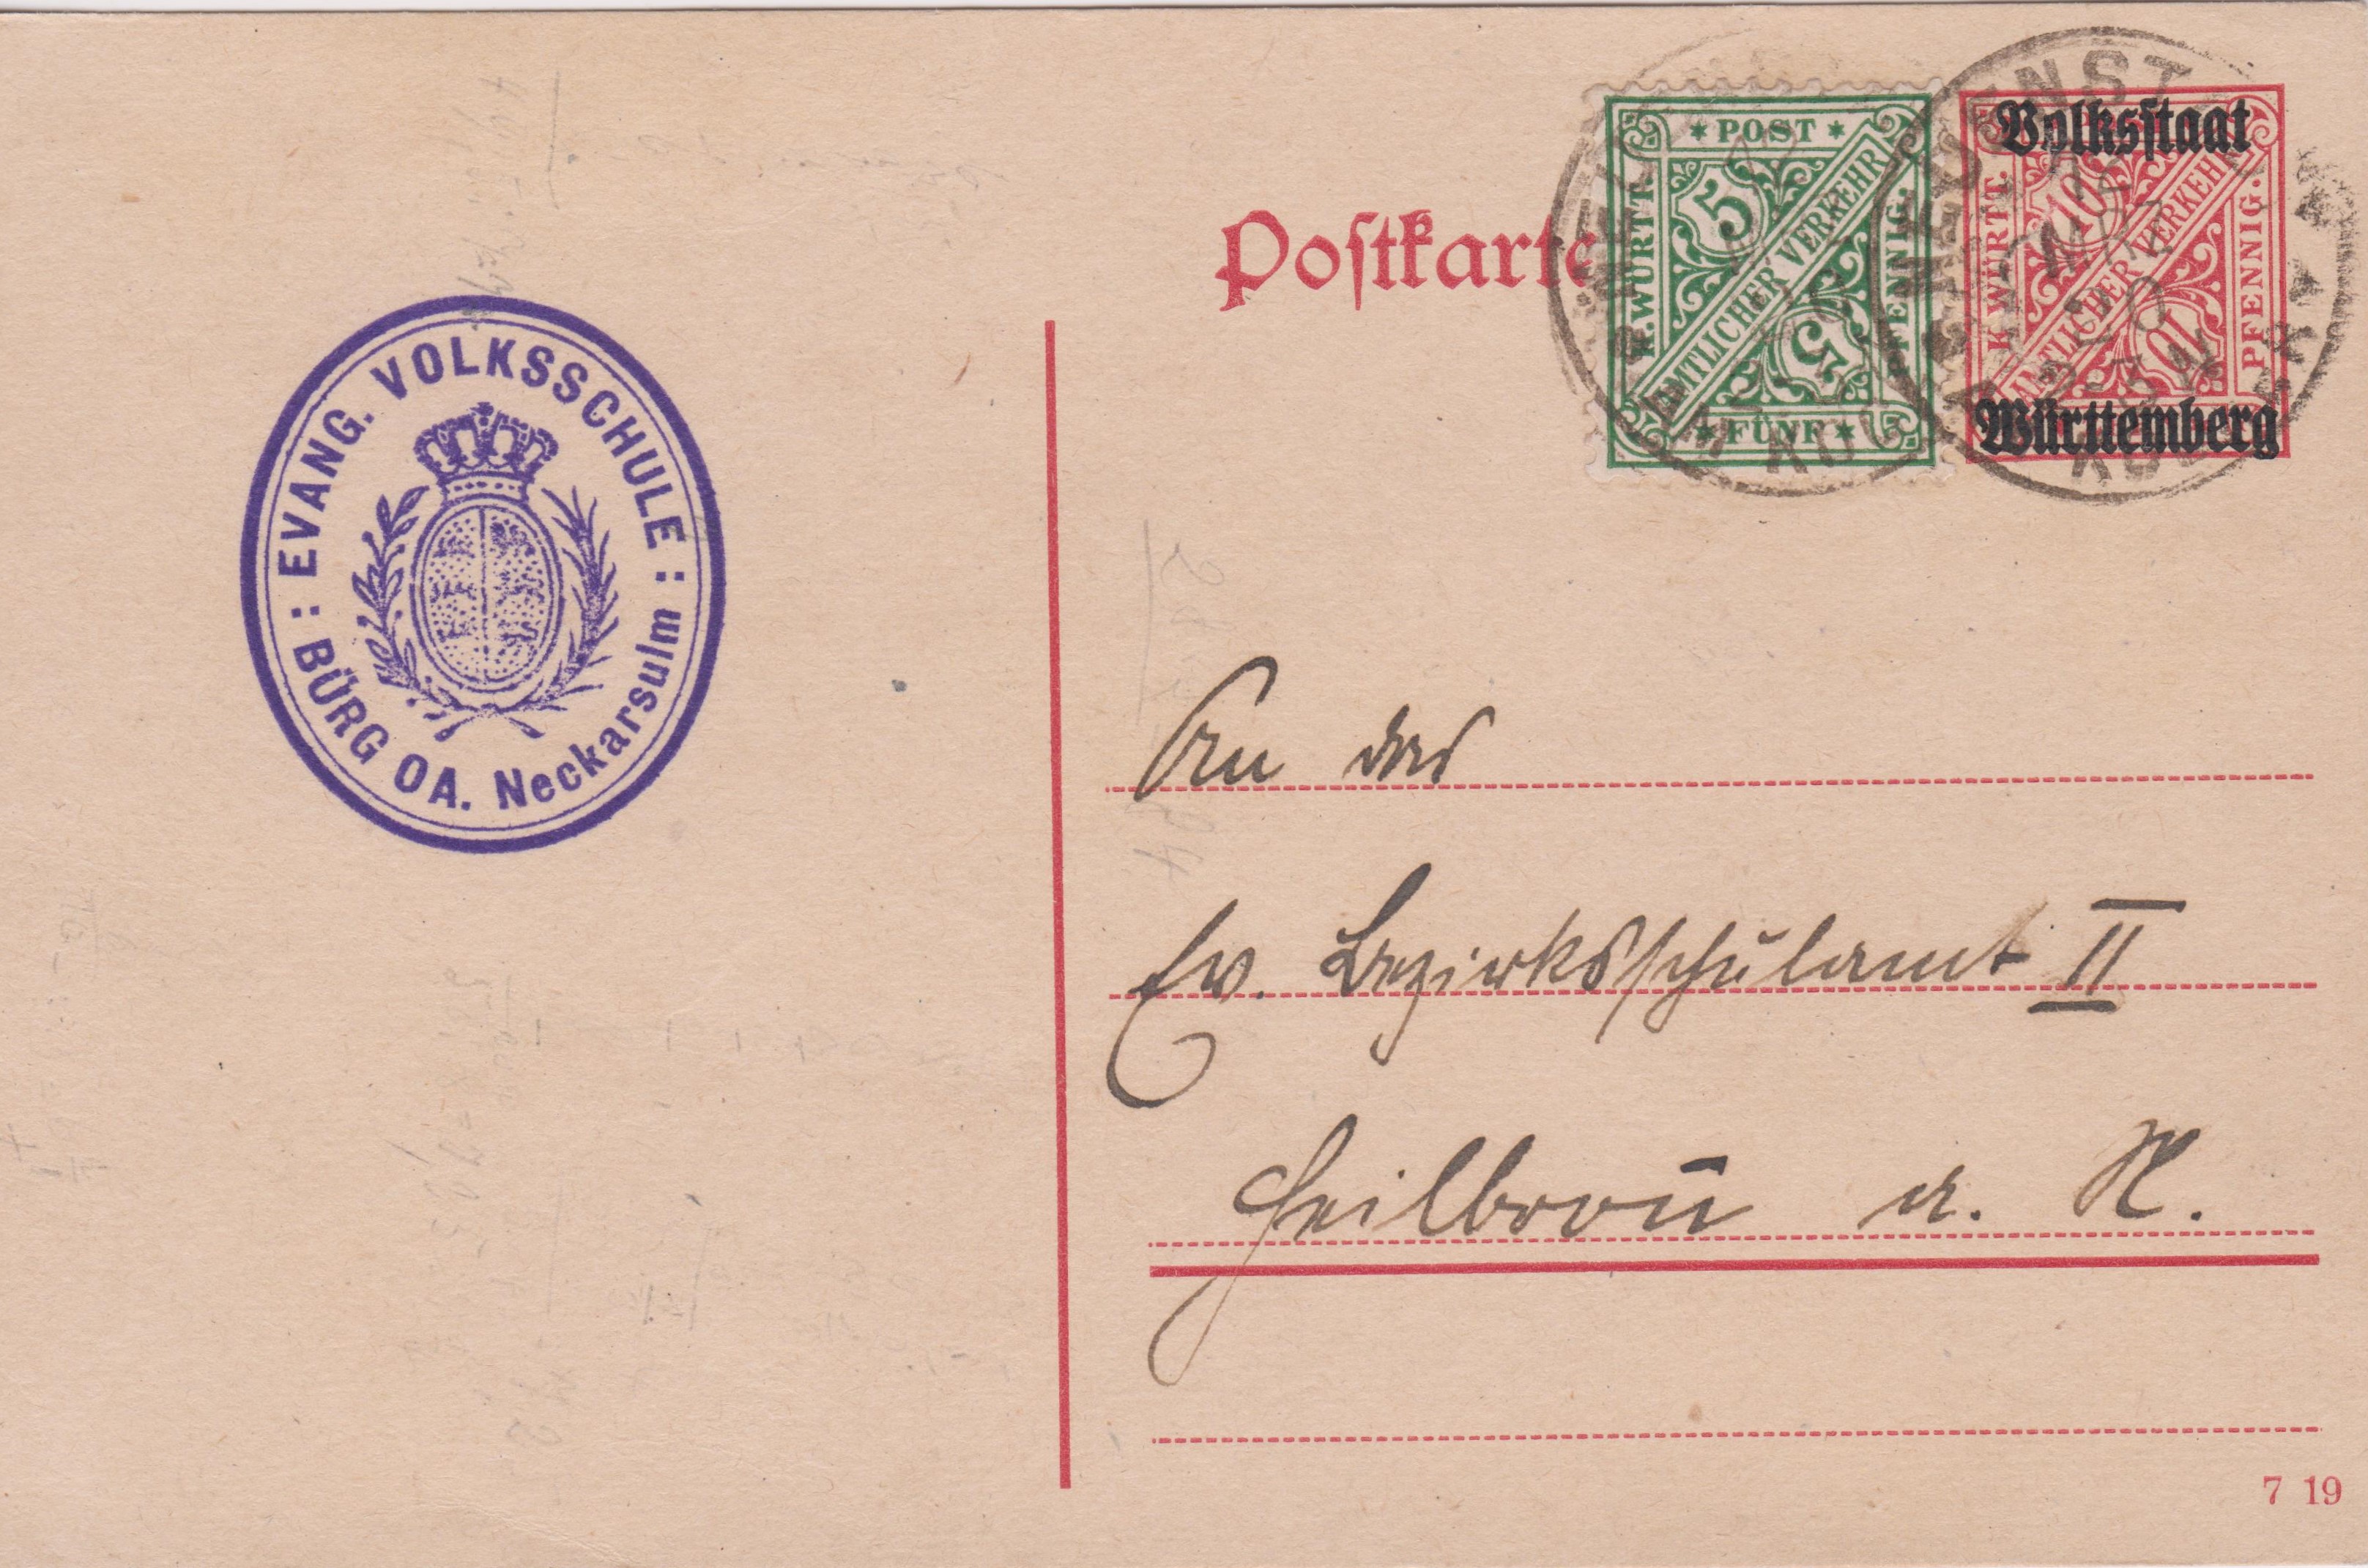 Postkarte
* POST *
K. WÜRTT.
5
AMTLICHER VERKEHR
5
PFENNIG.
* FÜNF *
Volksstaat
K. WÜRTT.
10
AMTLICHER VERKEHR
10
PFENNIG.
Württemberg
: EVANG. VOLKSSCHULE :
BÜRG OA. Neckarsulm
An das
Ev. Bezirksschulamt II
Heilbron̄ a. N.
7 19